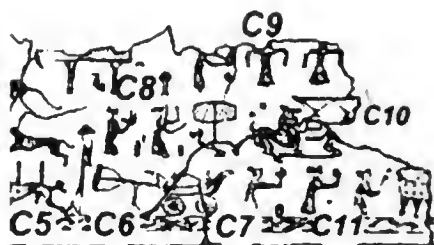 C9
C8
C10
C5 C6 C7 C11